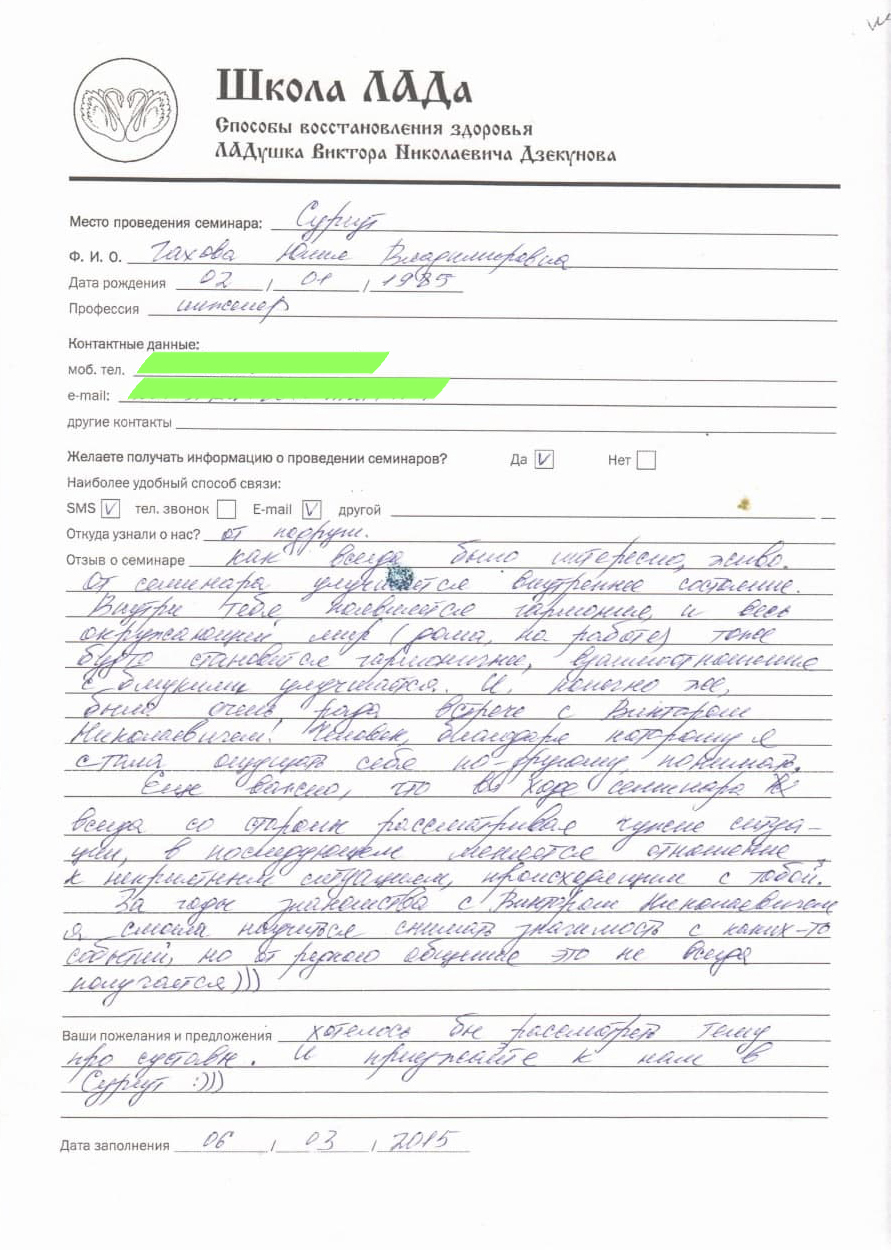 Школа ЛАДа
Способы восстановления здоровья
ЛАДушка Виктора Николаевича Дзекунова
Место проведения семинара: Сургут
Ф. И. О. Гахова Юлия Владимировна
Дата рождения 02 / 01 / 1985
Профессия инженер
Контактные данные:
моб. тел.
e-mail:
другие контакты
Желаете получать информацию о проведении семинаров? Да V Нет
Наиболее удобный способ связи:
SMS V тел. звонок E-mail V другой
Откуда узнали о нас? от подруги.
Отзыв о семинаре как всегда было интересно, живо.
От семинара улучшается внутреннее состояние.
Внутри тебя появляется гармония, и весь
окружающий мир (дома, на работе) тоже
будто становится гармоничнее, взаимоотношения
с близкими улучшаются. И, конечно же,
была очень рада встрече с Виктором
Николаевичем! Человек, благодаря которому я
стала ощущать себя по-другому, понимать.
Еще важно, что в ходе семинара
всегда со сторон рассматривая чужие ситуа-
ции, в последующем меняется отношение
к неприятным ситуациям, происходящим с тобой.
За годы знакомства с Виктором Николаевичем
я смогла научиться снимать значимость с каких-то
событий, но от редкого общения это не всегда
получается)))
Ваши пожелания и предложения хотелось бы рассмотреть тему
про суставы. И приезжайте к нам в
Сургут :)))
Дата заполнения 06 / 03 / 2015